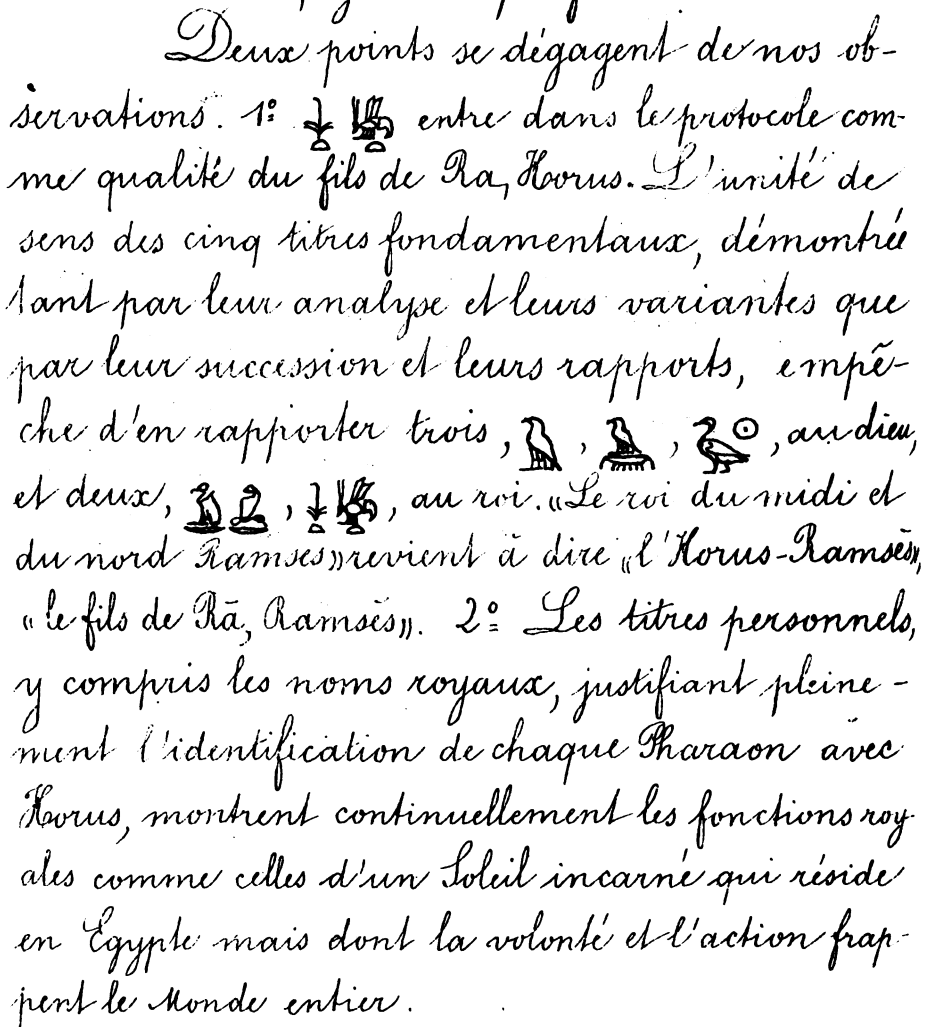 Deux points se dégagent de nos ob-
servations. 1º 𓇓𓏏𓆤𓏏 entre dans le protocole com-
me qualité du fils de Ra, Horus. L'unité de
sens des cinq titres fondamentaux, démontrée
tant par leur analyse et leurs variantes que
par leur succession et leurs rapports, empê-
che d'en rapporter trois, 𓅃, 𓅉, 𓅭𓇳, au dieu,
et deux, 𓅒, 𓇓𓏏𓆤𓏏, au roi. «Le roi du midi et
du nord Ramses» revient à dire «l'Horus-Ramsès»,
«le fils de Rā, Ramsès». 2º Les titres personnels,
y compris les noms royaux, justifiant pleine-
ment l'identification de chaque Pharaon avec
Horus, montrent continuellement les fonctions roy-
ales comme celles d'un Soleil incarné qui réside
en Egypte mais dont la volonté et l'action frap-
pent le Monde entier.